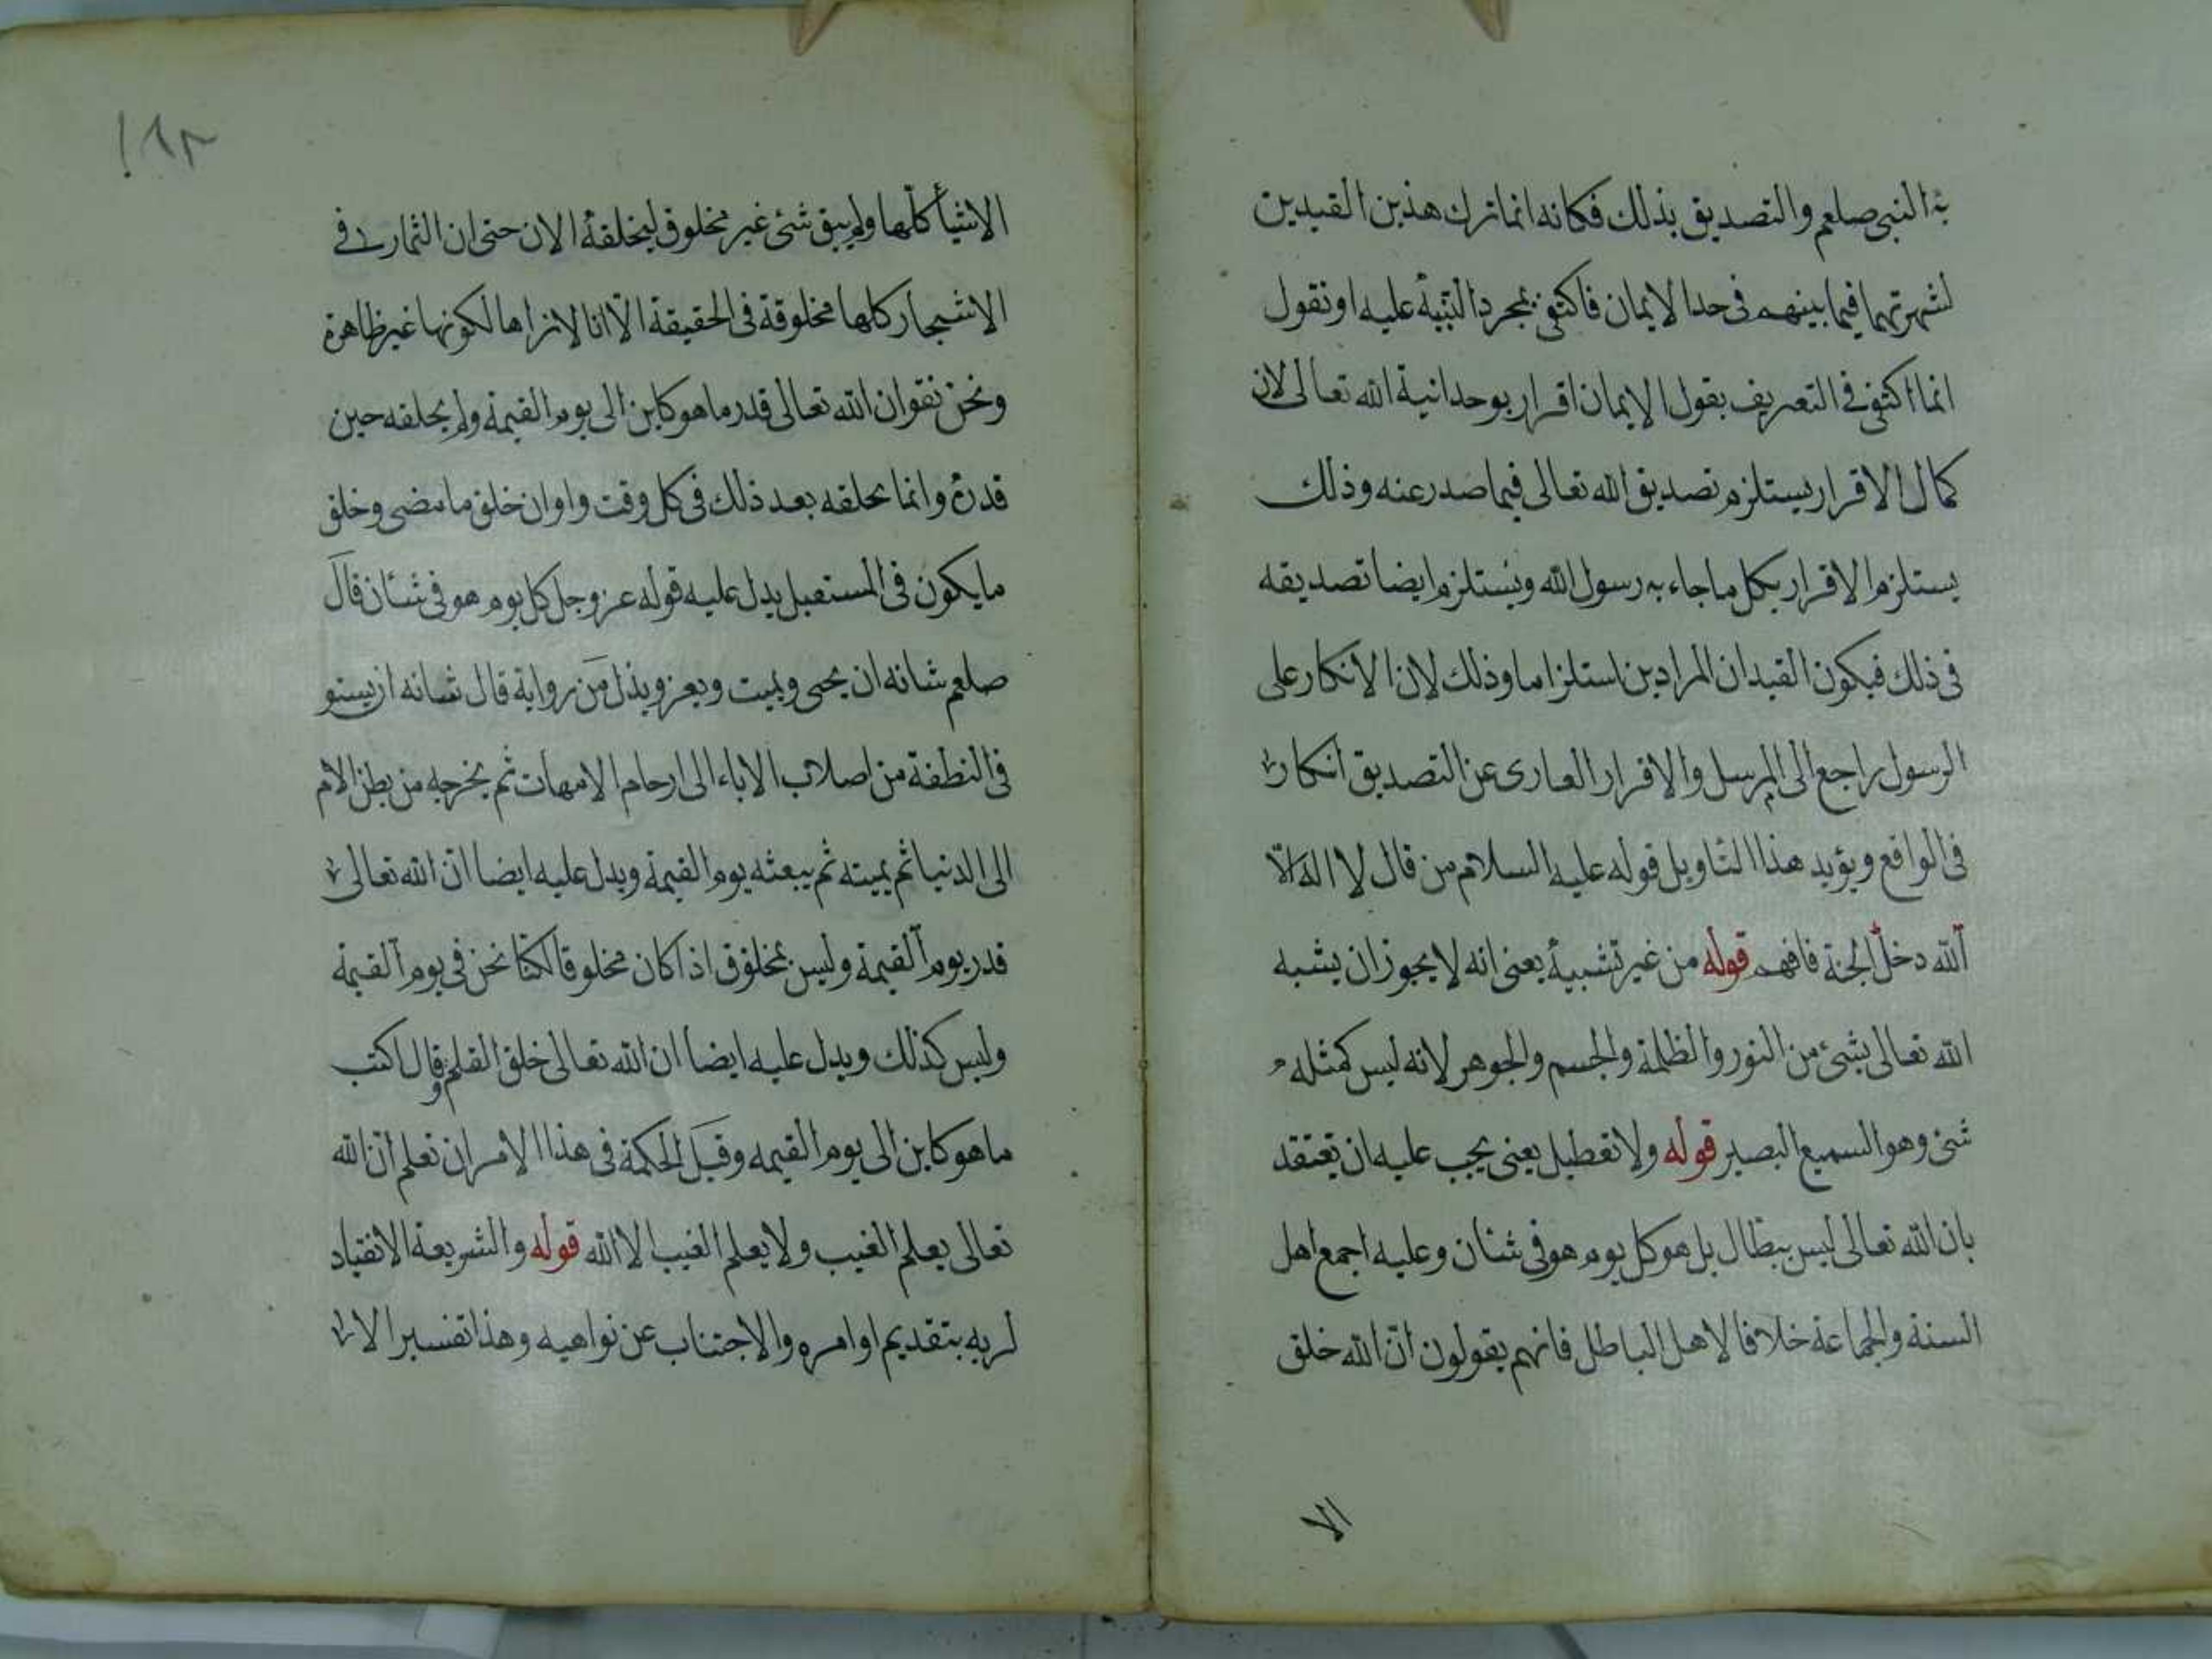 به النبى صلعم والتصديق بذلك فكانه انما ترك هذين القيدين
لشهرتهما فيما بينهم فى حد الايمان فاكتفى بمجرد التنبيه عليه او نقول
انما اكتفى فى التعريف بقول الايمان اقرار بوحدانية الله تعالى لان
كمال الاقرار يستلزم تصديق الله تعالى فيما صدر عنه وذلك
يستلزم الاقرار بكل ما جاء به رسول الله ويستلزم ايضا تصديقه
فى ذلك فيكون القيدان المرادين استلزاما وذلك لان الانكار على
الرسول راجع الى المرسل والاقرار العارى عن التصديق انكار
فى الواقع ويؤيد هذا التاويل قوله عليه السلام من قال لا اله الا
الله دخل الجنة فافهم قوله من غير تشبيه يعنى انه لا يجوز ان يشبه
الله تعالى بشئ من النور والظلمة والجسم والجوهر لانه ليس كمثله
شئ وهو السميع البصير قوله ولا تعطيل يعنى يجب عليه ان يعتقد
بان الله تعالى ليس ببطال بل هو كل يوم هو فى شان وعليه اجمع اهل
السنة والجماعة خلافا لاهل الباطل فانهم يقولون ان الله خلق
الا
١٩٢
الاشيأ كلها ولم يبق شئ غير مخلوق ليخلقه الان حتى ان الثمار فى
الاشجار كلها مخلوقة فى الحقيقة الا انا لا نراها لكونها غير ظاهرة
ونحن نقول ان الله تعالى قدر ما هو كاين الى يوم القيمة ولم يخلقه حين
قدره وانما يخلقه بعد ذلك فى كل وقت واوان خلق ما مضى وخلق
ما يكون فى المستقبل يدل عليه قوله عز وجل كل يوم هو فى شان قال
صلعم شانه ان يحيى ويميت ويعز ويذل من رواية قال شانه ان يسو
فى النطفة من اصلاب الاباء الى ارحام الامهات ثم يخرجه من بطن الام
الى الدنيا ثم يميته ثم يبعثه يوم القيمة ويدل عليه ايضا ان الله تعالى
قدر يوم القيمة وليس بمخلوق اذ كان مخلوقا لكنا نحن فى يوم القيمة
وليس كذلك ويدل عليه ايضا ان الله تعالى خلق القلم وقال اكتب
ما هو كاين الى يوم القيمه وقيل الحكمة فى هذا الامر ان تعلم ان الله
تعالى يعلم الغيب ولا يعلم الغيب الا الله قوله والشريعة الانقياد
لربه بتقديم اوامره والاجتناب عن نواهيه وهذا تفسير